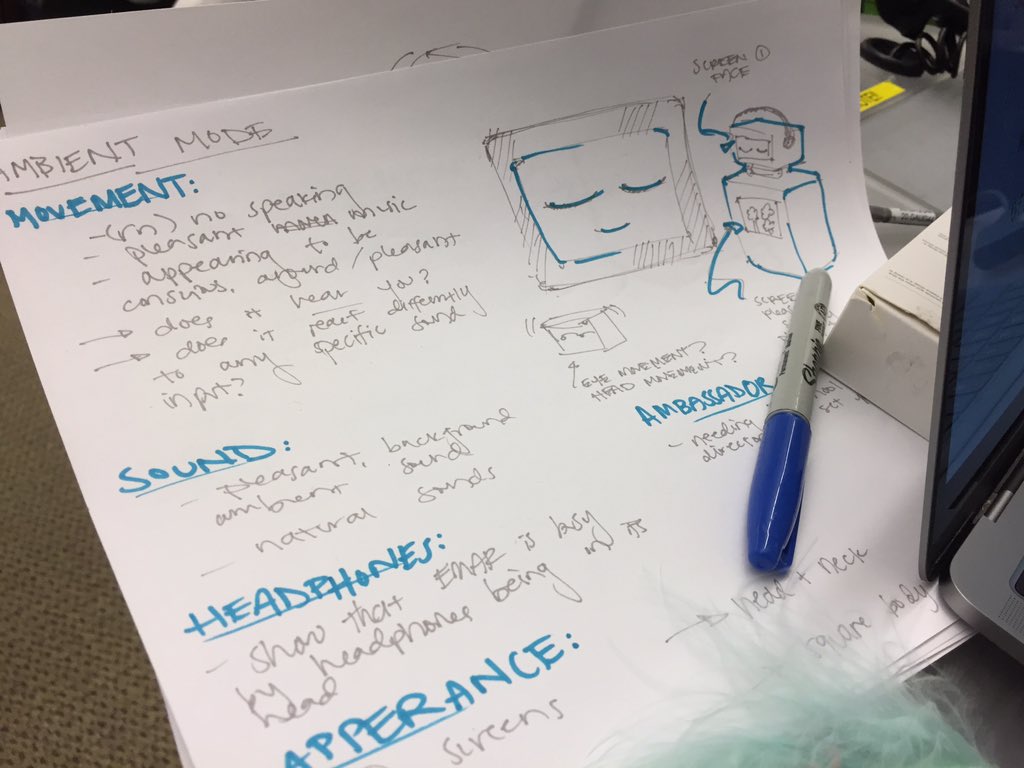 AMBIENT MODE
MOVEMENT:
- (rn) no speaking
- pleasant music
- appearing to be
conscius, around / pleasant
→ does it hear you?
→ does it react differently
to any specific sound
input?
SOUND:
- pleasant, background
ambient sound
- natural sounds
HEADPHONES:
- show that EMAR is busy
by headphones being on its
head
APPERANCE:
screens
SCREEN ①
FACE
EYE MOVEMENT?
HEAD MOVEMENT?
SCREEN
AMBASSADOR
- needing
set
→ head + neck
square body
Sharpie